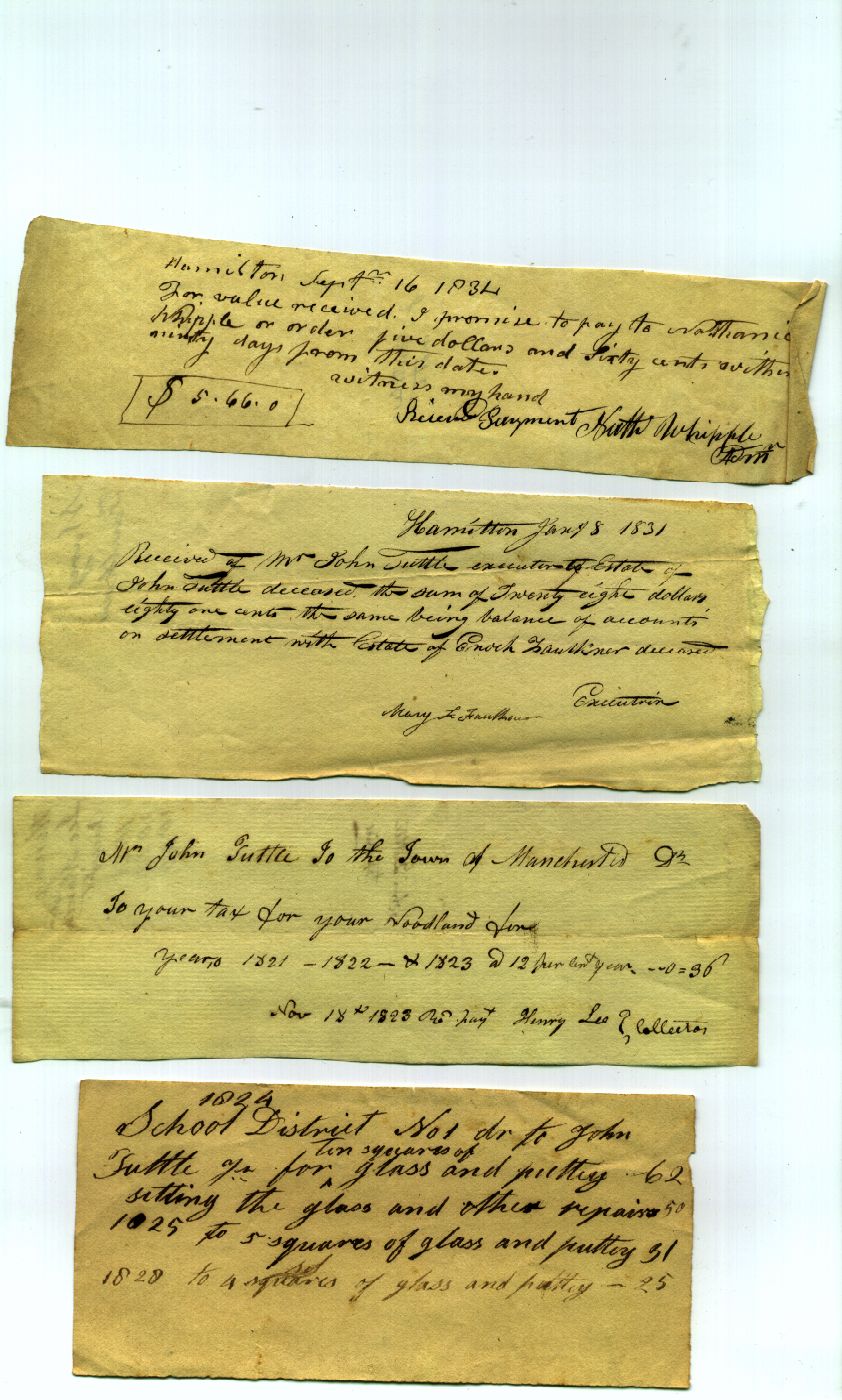 Hamilton Septr 16 1834
For value received. I promise to pay to Nathanie
Whipple or order five dollars and Sixty cents within
ninety days from this date.
witness my hand
$ 5.66.0
Receivd Payment Nathl Whipple
Hamilton Jany 8 1831
Received of Mr John Tuttle executor of Estate of
John Tuttle deceased. the sum of Twenty eight dollars
eighty one cents the same being balance of accounts
on settlement with Estate of Enoch Faulkner deceased
Executrix
Mary F. Faulkner
Mr John Tuttle To the Town of Manchester Dr
To your tax for your Woodland for
years 1821 - 1822 - & 1823 a 12 per cent year. -- 0=36
Nov 18th 1823 Recd payt Henry Lee Collector
1824
School District No1 dr to John
ten squares of
Tuttle Jr for glass and puttey - 62
setting the glass and other repairs 50
1825 to 5 squares of glass and puttey 31
1828 to 4 squares of glass and puttey - 25